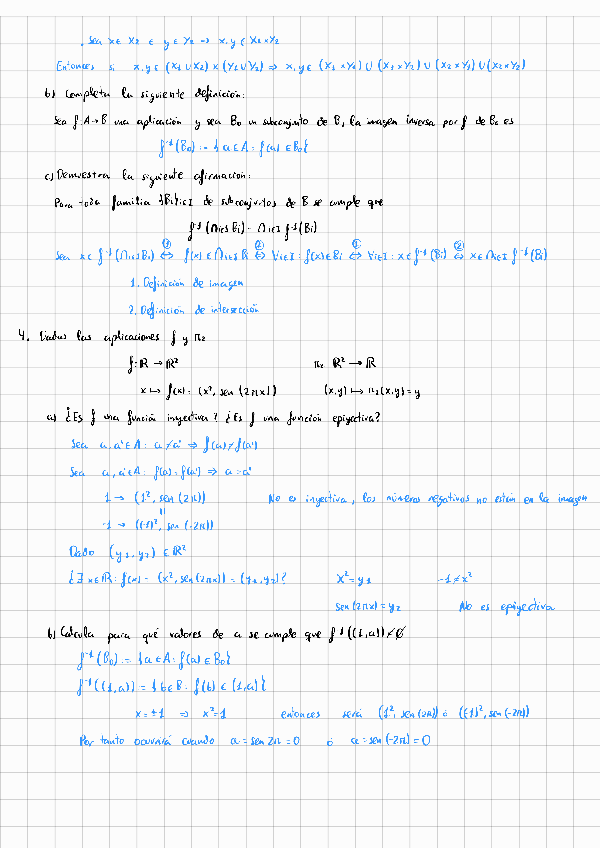 . Sea x ∈ X₂ e y ∈ Y₂ ⇒ x,y ∈ X₂×Y₂
Entonces si x,y ∈ (X₁ ∪ X₂) × (Y₁ ∪ Y₂) ⇒ x,y ∈ (X₁×Y₁) ∪ (X₁×Y₂) ∪ (X₂×Y₁) ∪ (X₂×Y₂)
b) Completa la siguiente definición:
Sea f: A→B una aplicación y sea B₀ un subconjunto de B, la imagen inversa por f de B₀ es
f⁻¹(B₀) := {a ∈ A : f(a) ∈ B₀}
c) Demuestra la siguiente afirmación:
Para toda familia {Bi}i∈I de subconjuntos de B se cumple que
f⁻¹(∩i∈I Bi) = ∩i∈I f⁻¹(Bi)
Sea x ∈ f⁻¹(∩i∈I Bi) ⇔(1) f(x) ∈ ∩i∈I Bi ⇔(2) ∀i∈I : f(x) ∈ Bi ⇔(1) ∀i∈I : x ∈ f⁻¹(Bi) ⇔(2) x ∈ ∩i∈I f⁻¹(Bi)
1. Definición de imagen
2. Definición de intersección
4. Dadas las aplicaciones f y π₂
f: ℝ → ℝ² π₂ ℝ² → ℝ
x ↦ f(x) = (x², sen(2πx)) (x,y) ↦ π₂(x,y) = y
a) ¿Es f una función inyectiva? ¿Es f una función epiyectiva?
Sea a,a' ∈ A : a ≠ a' ⇒ f(a) ≠ f(a')
Sea a,a' ∈ A : f(a) = f(a') ⇒ a = a'
1 → (1², sen(2π)) No es inyectiva, los números negativos no están en la imagen
=
-1 → ((-1)², sen(-2π))
Dado (y₁, y₂) ∈ ℝ²
¿∃ x∈ℝ : f(x) = (x², sen(2πx)) = (y₁, y₂)? x² = y₁ -1 ≠ x²
sen(2πx) = y₂ No es epiyectiva
b) Calcula para qué valores de a se cumple que f⁻¹((1,a)) ≠ ∅
f⁻¹(B₀) := {a ∈ A : f(a) ∈ B₀}
f⁻¹((1,a)) = {b ∈ B : f(b) ∈ (1,a)}
x = ±1 ⇒ x² = 1 entonces será (1², sen(2π)) ó ((-1)², sen(-2π))
Por tanto ocurrirá cuando a = sen 2π = 0 ó a = sen(-2π) = 0